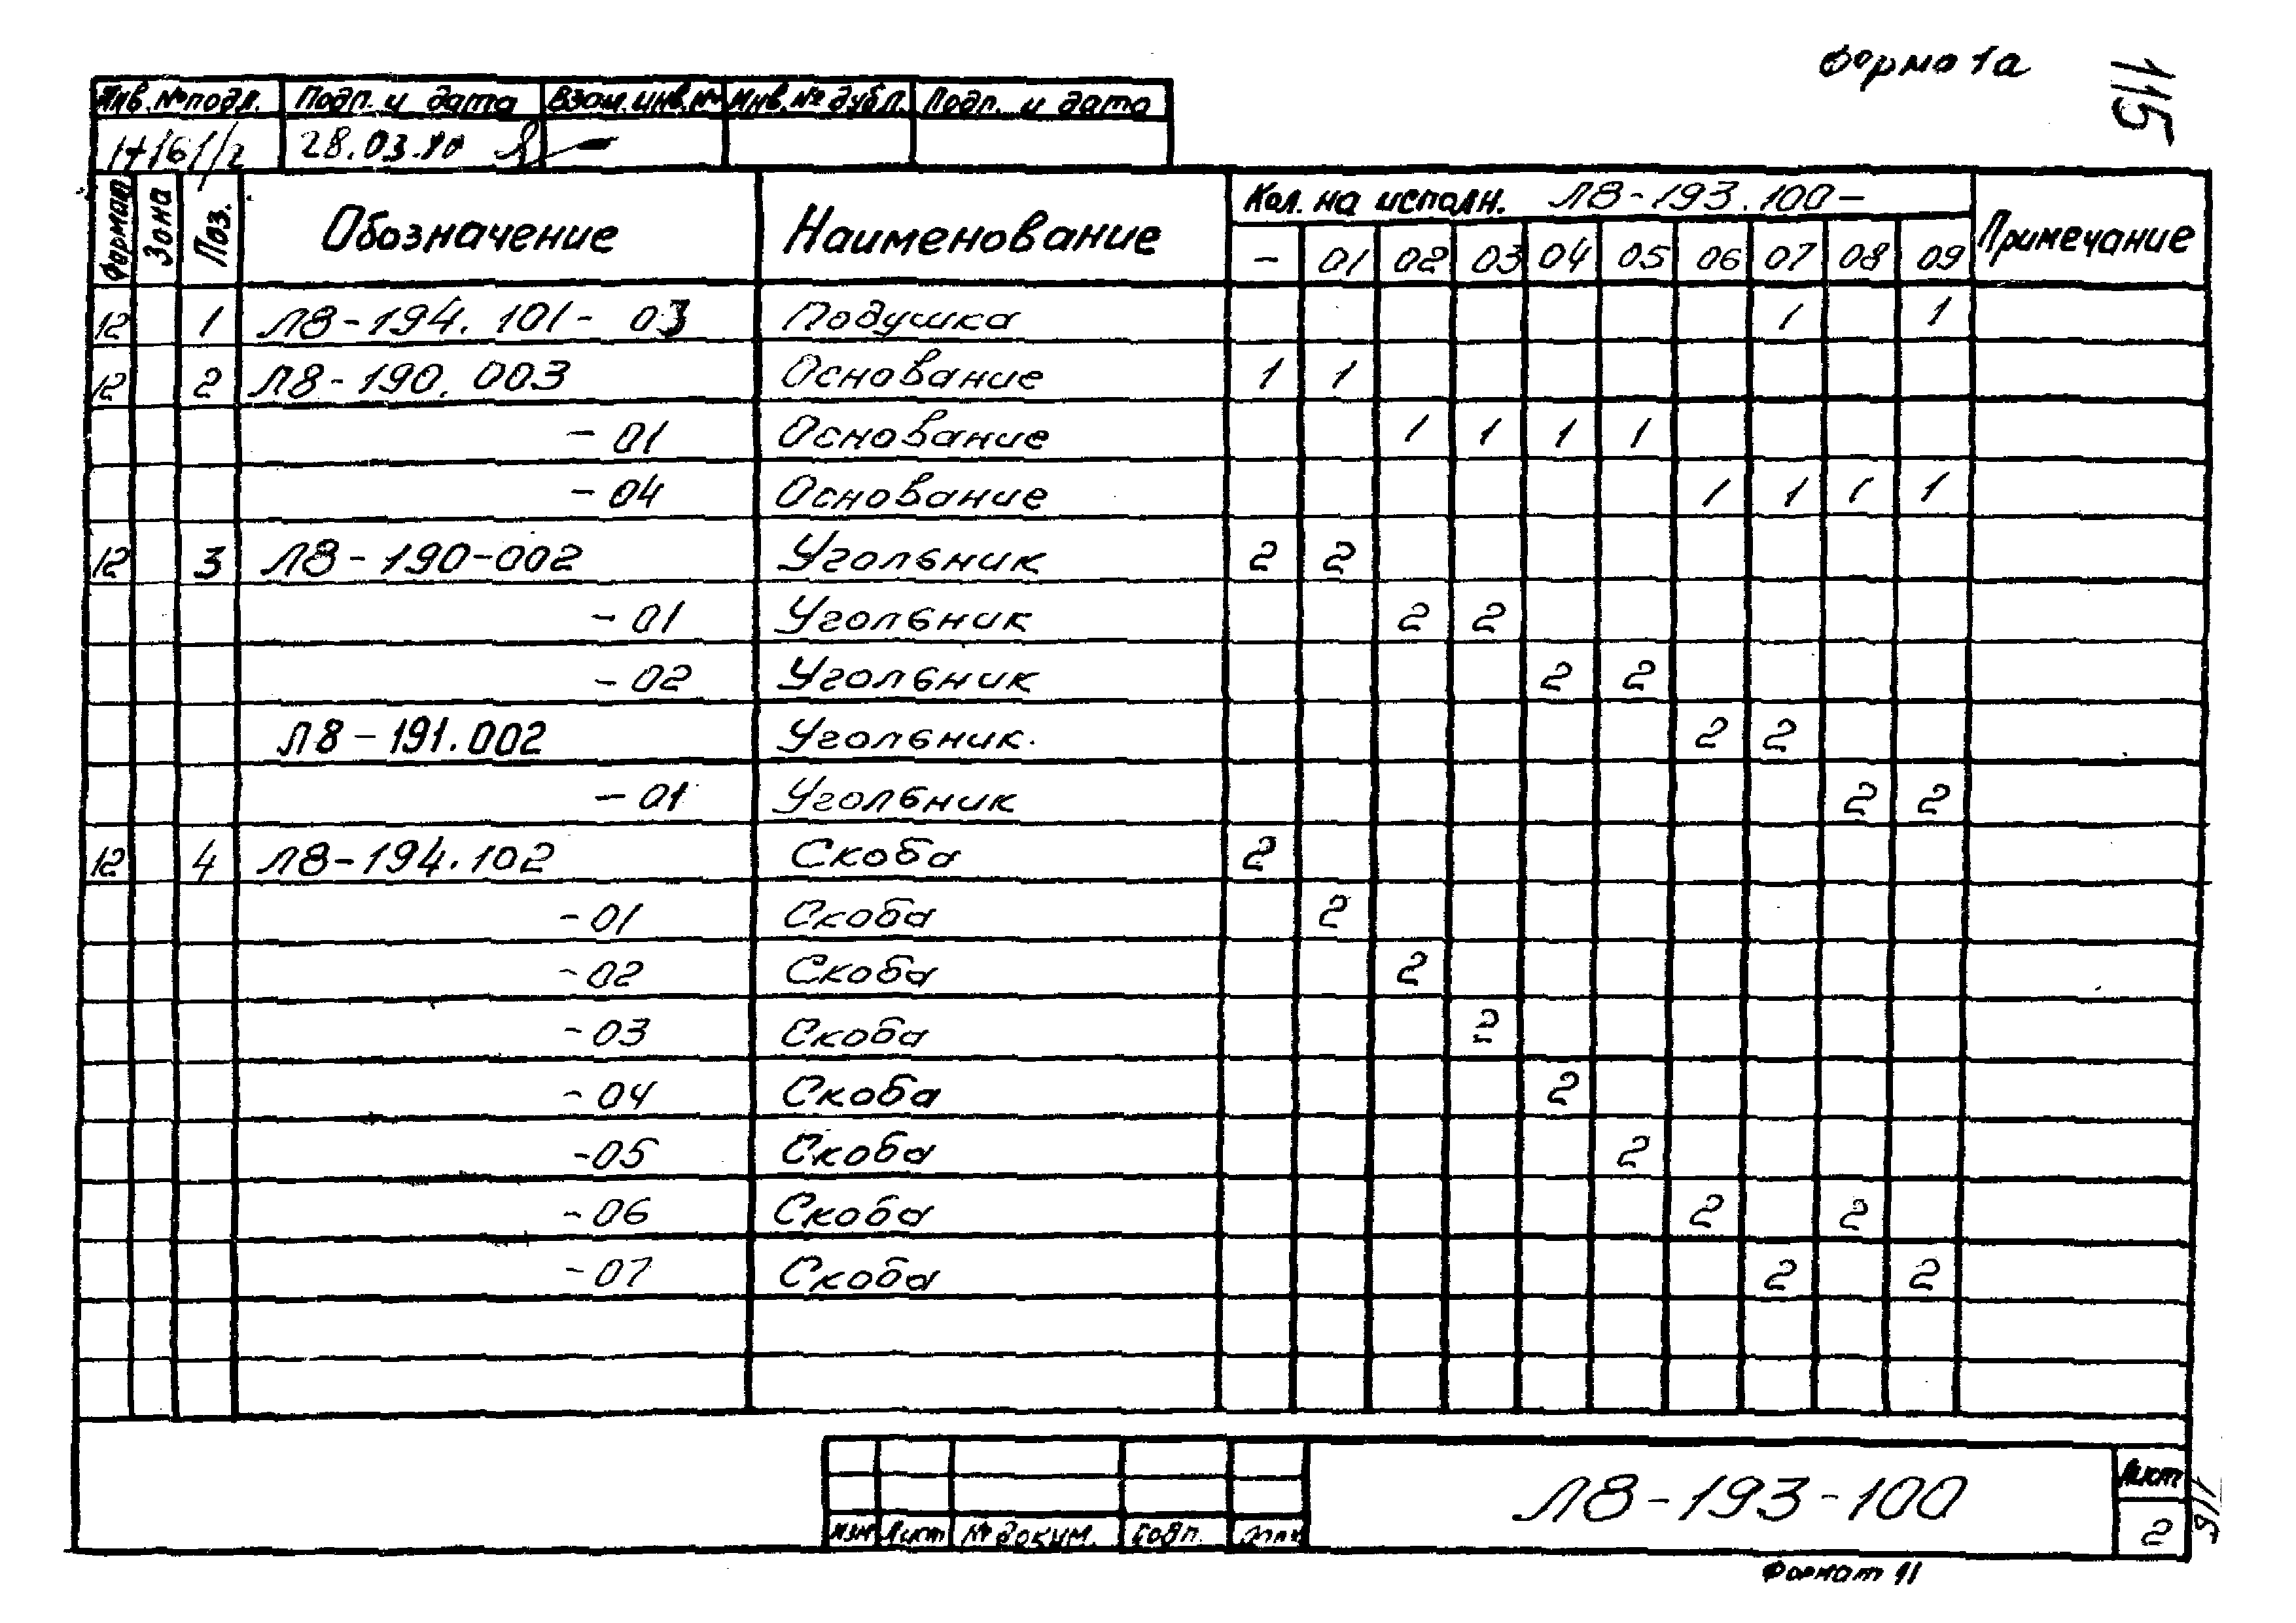 Форма 1а
115
Инв. № подл. Подп. и дата Взам. инв. № Инв. № дубл. Подп. и дата
28.03.80
Формат Зона Поз. Обозначение Наименование Кол. на исполн. Л8-193.100- Примечание
- 01 02 03 04 05 06 07 08 09
12 1 Л8-194.101- 03 Подушка 1 1
12 2 Л8-190.003 Основание 1 1
-01 Основание 1 1 1 1
-04 Основание 1 1 1 1
12 3 Л8-190-002 Угольник 2 2
-01 Угольник 2 2
-02 Угольник 2 2
Л8-191.002 Угольник. 2 2
-01 Угольник 2 2
12 4 Л8-194.102 Скоба 2
-01 Скоба 2
-02 Скоба 2
-03 Скоба 2
-04 Скоба 2
-05 Скоба 2
-06 Скоба 2 2
-07 Скоба 2 2
Изм Лист № докум. Подп. Л8-193-100 Лист
2
116
Формат 11